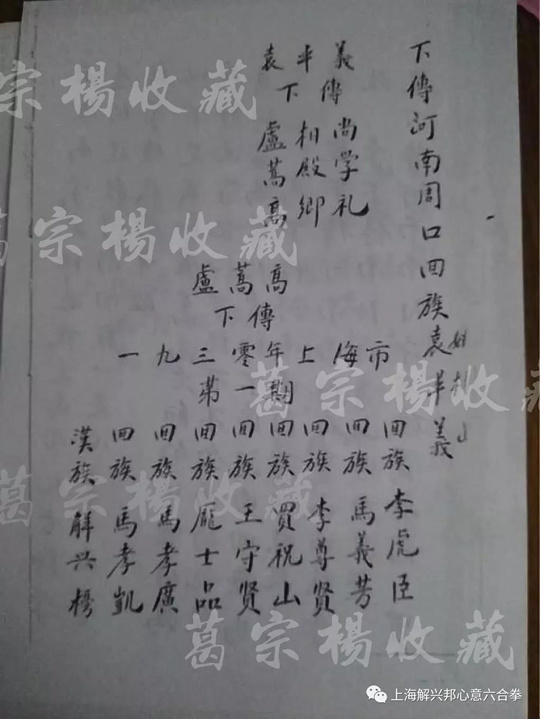 下傳河南周口回族袁半義
袁半義
下傳
尚学礼
相殿卿
盧蒿高
盧蒿高
下傳
一九三零年上海市
第一期
回族 李虎臣
回族 馬義芳
回族 李尊賢
回族 買祝山
回族 王守賢
回族 龐士品
回族 馬孝廣
回族 馬孝凱
漢族 解兴榜
宗楊收藏
葛宗楊收藏
葛宗楊收藏
葛宗楊收藏
葛宗楊收藏
上海解兴邦心意六合拳